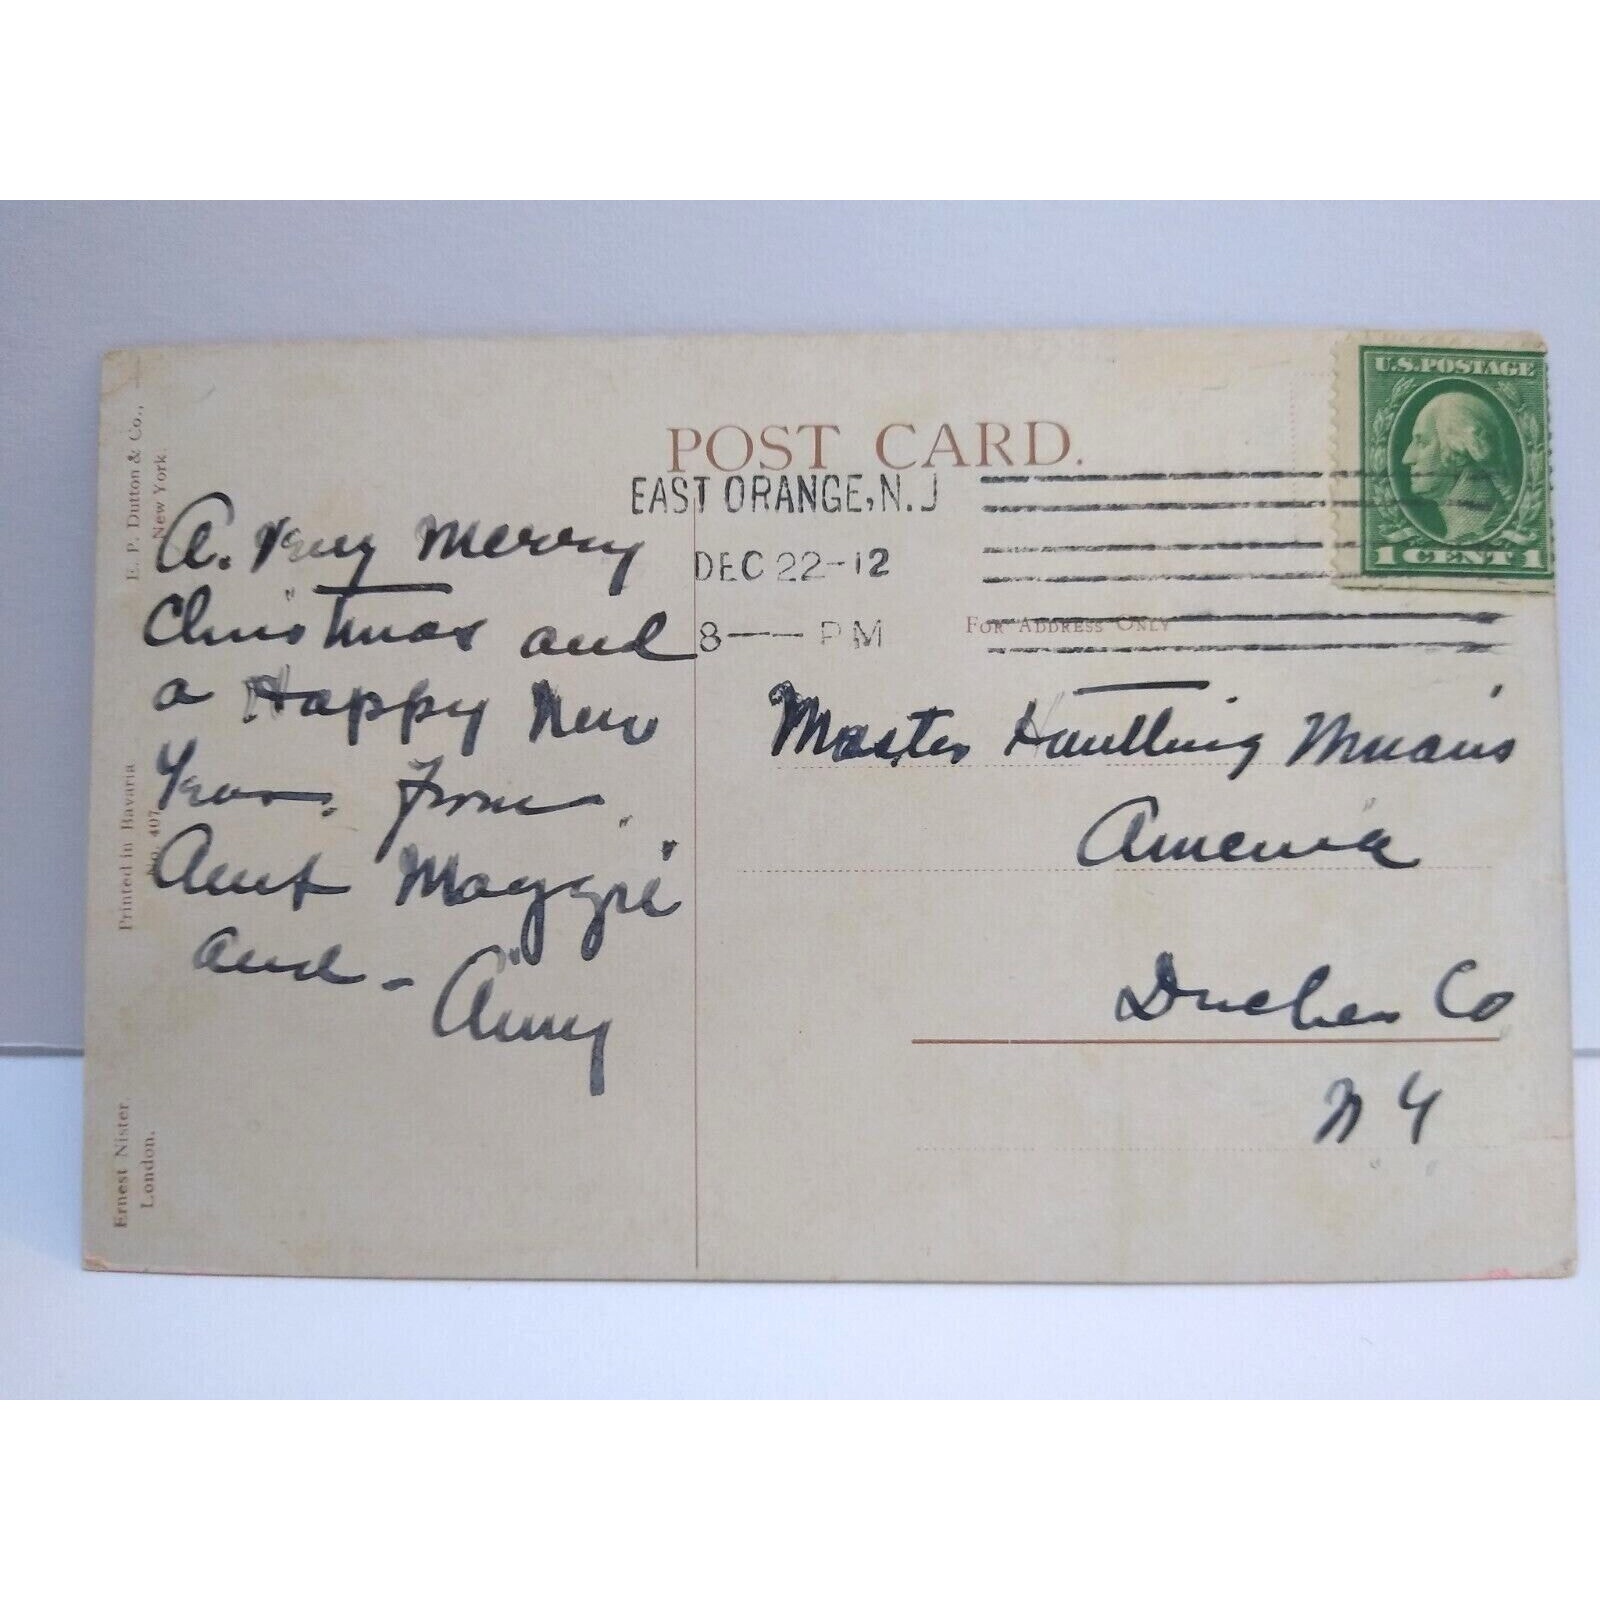 POST CARD.
EAST ORANGE, N.J
DEC 22-12
8 — PM
U.S. POSTAGE
1 CENT 1
FOR ADDRESS ONLY
A. Very Merry
Christmas and
a Happy New
Year. From
Aunt Maggie
and - Amy
Master
Amenia
Co
N Y
E. P. Dutton & Co.,
New York.
Printed in Bavaria
No. 407
Ernest Nister,
London.